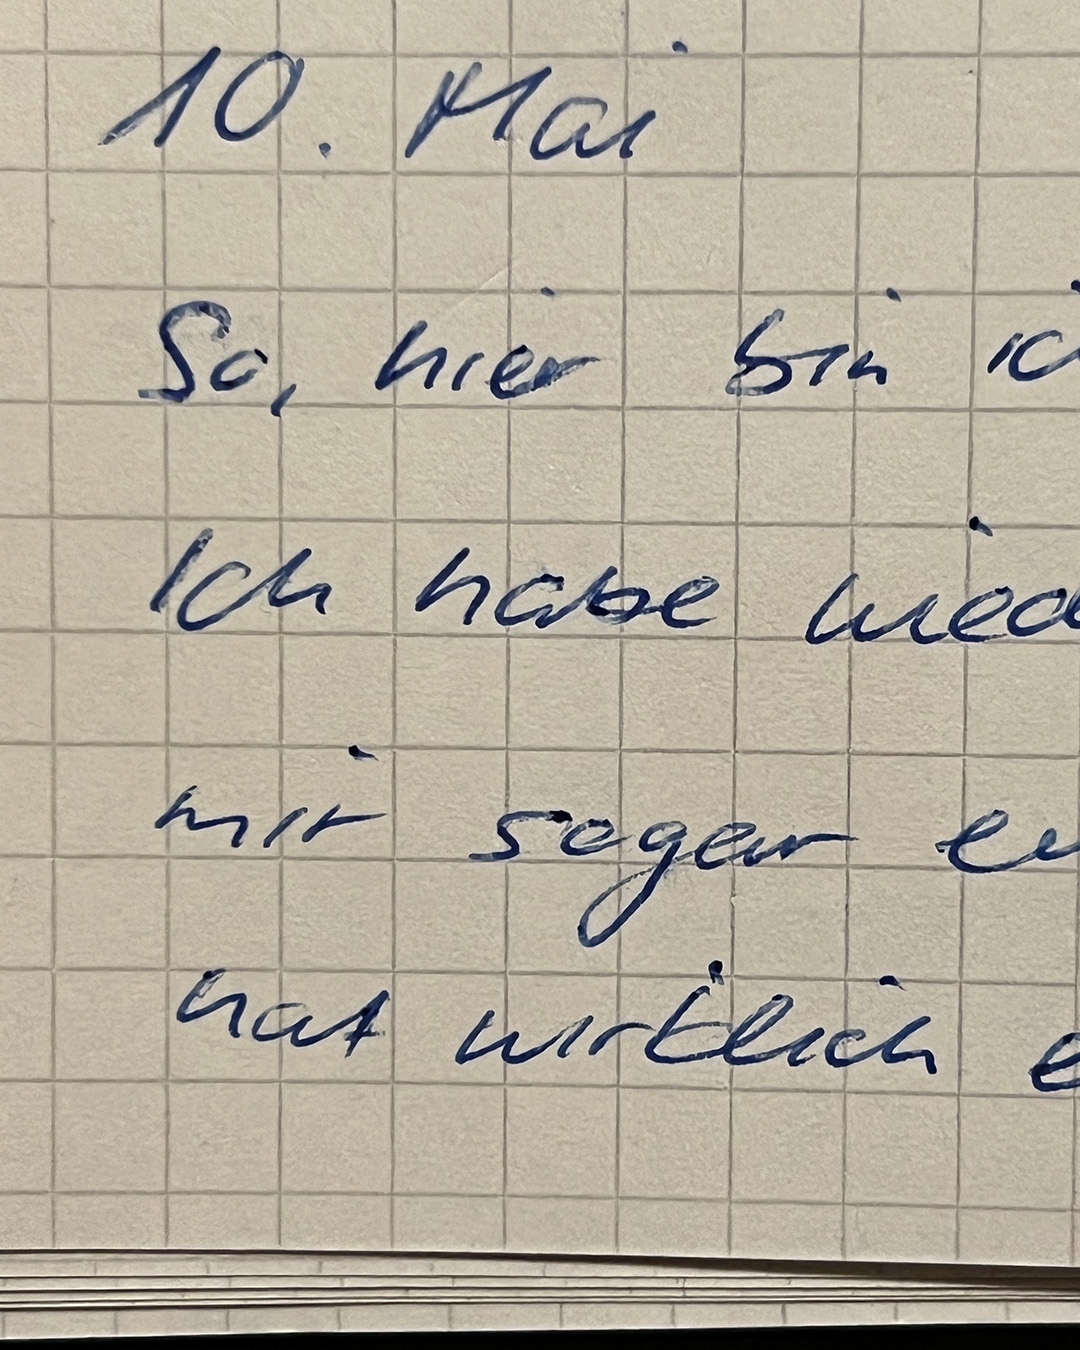 10. Mai
So, hier bin ic
Ich habe wied
mir sogar
hat wirklich e